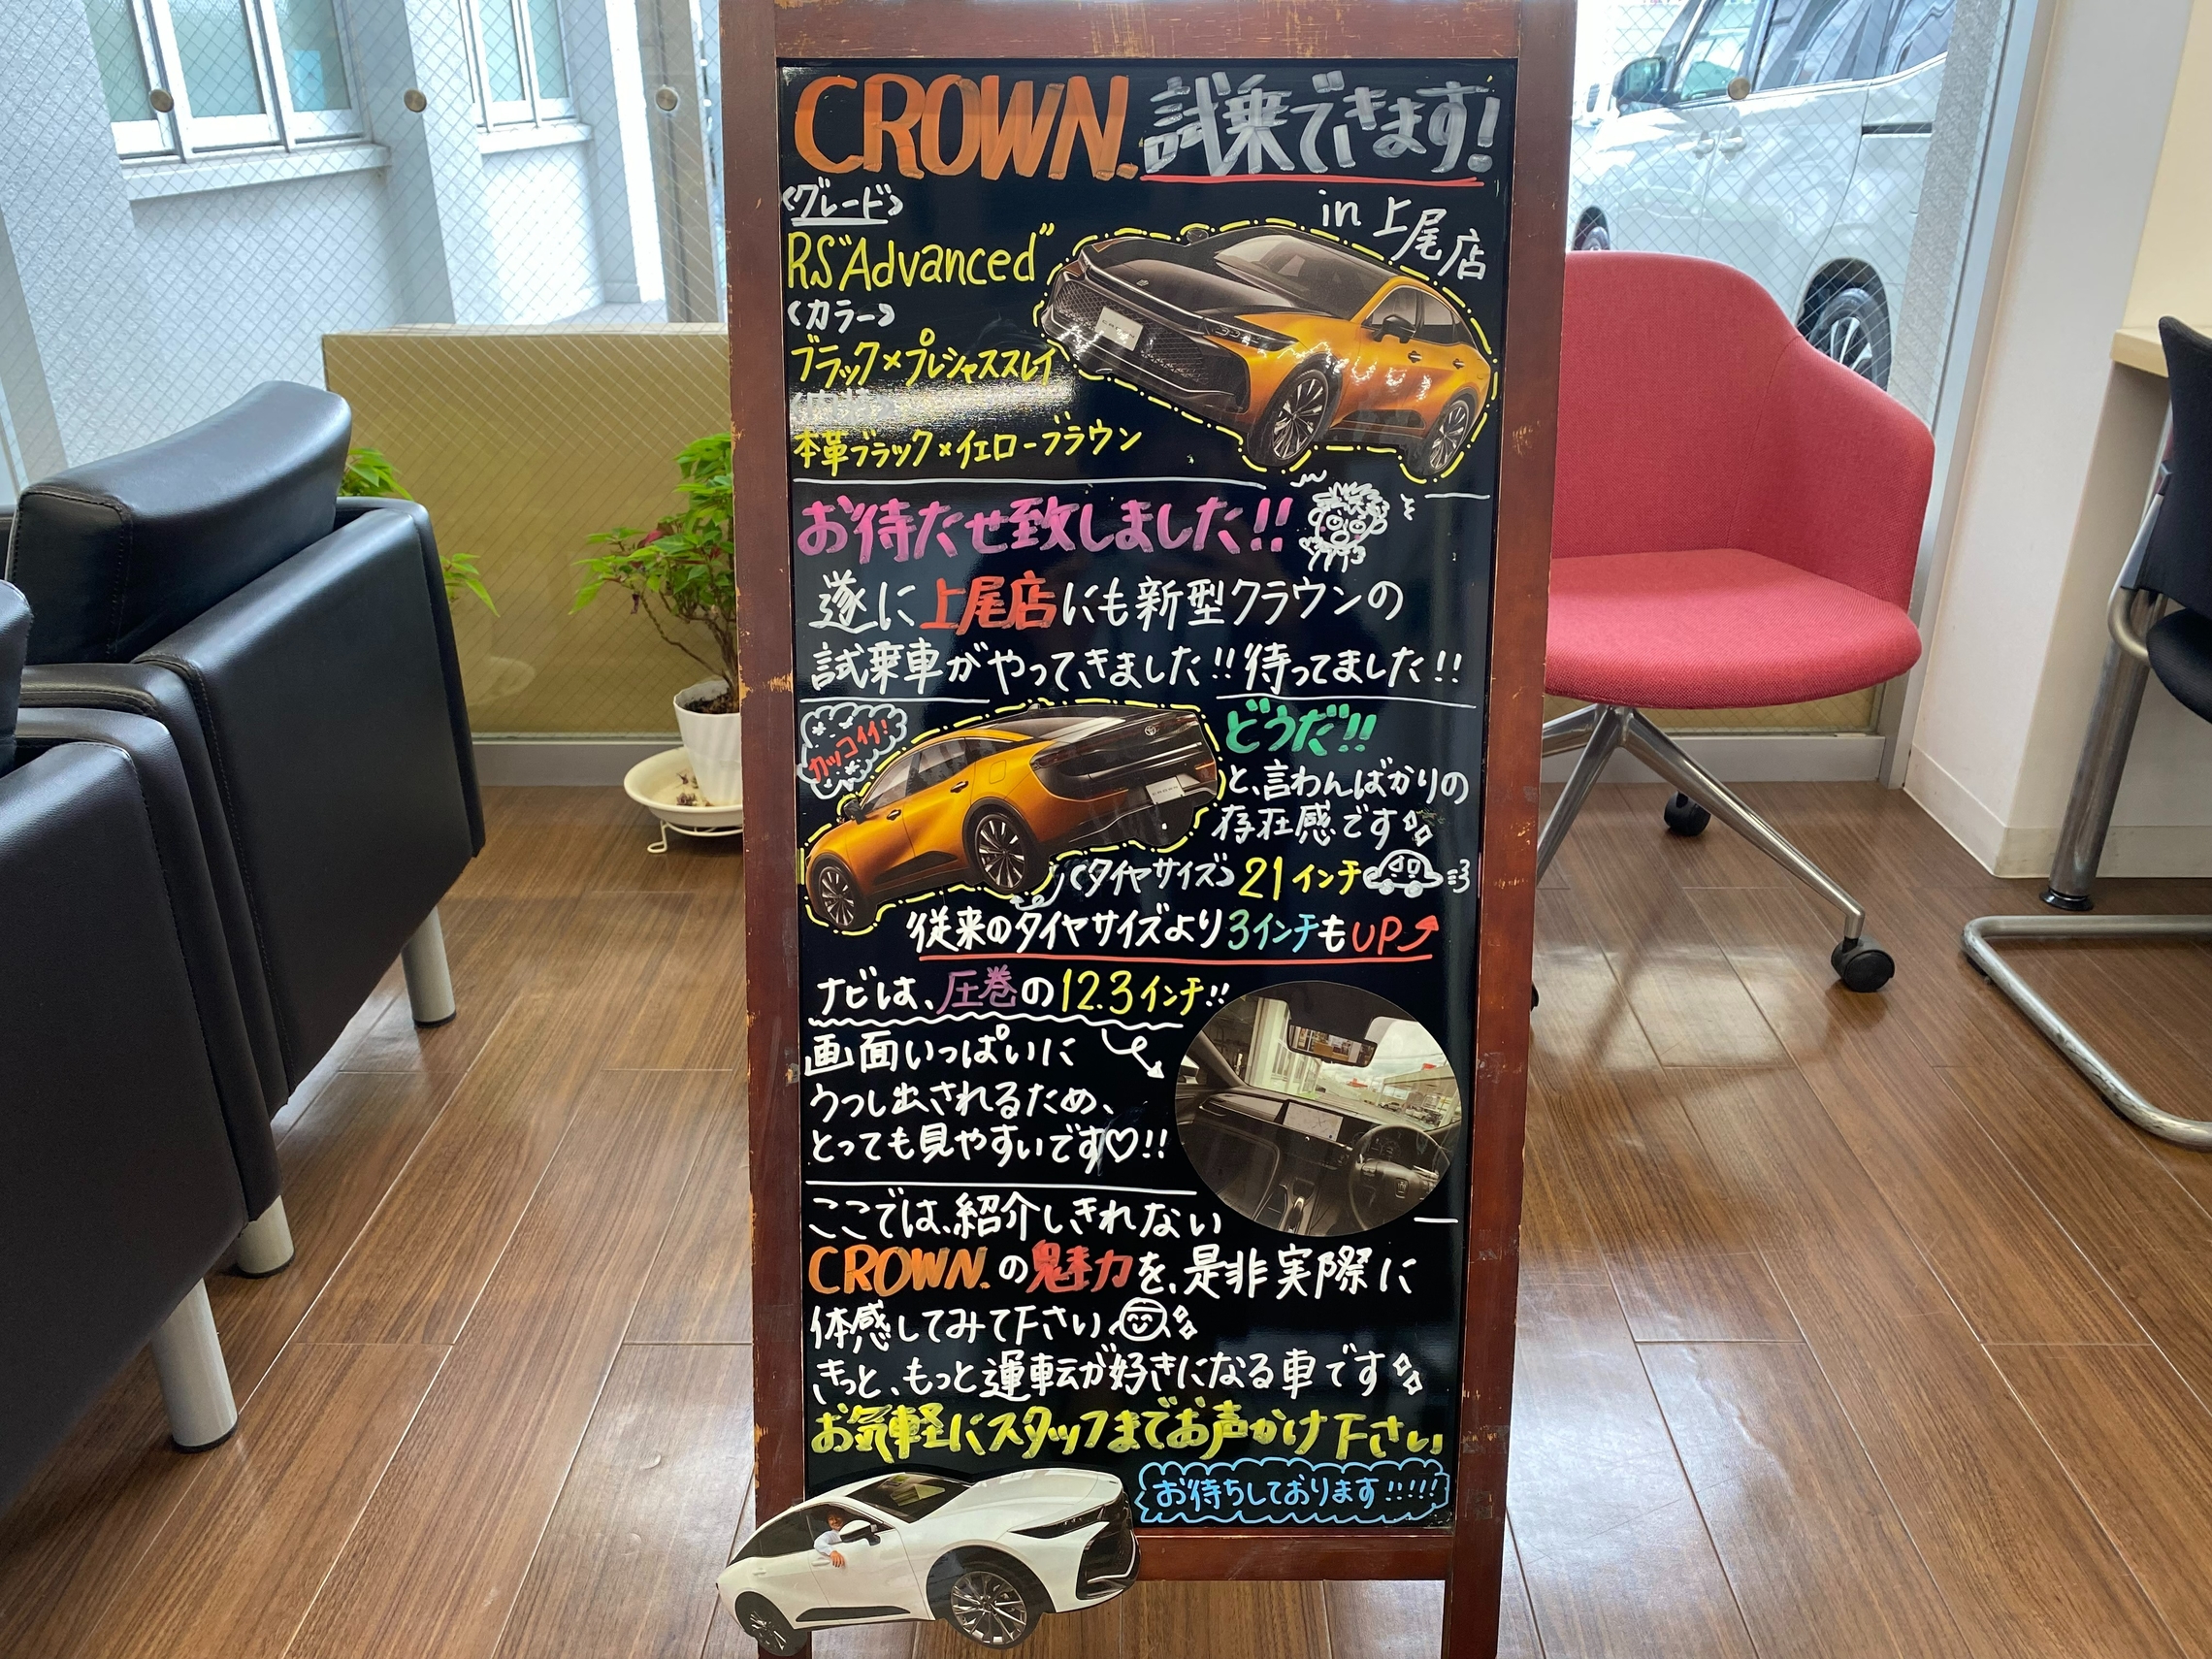 CROWN.試乗できます!
in 上尾店
<グレード>
RS"Advanced"
<カラー>
ブラック×プレシャススレイ
<内材>
本革ブラック×イエローブラウン
お待たせ致しました!!
遂に上尾店にも新型クラウンの
試乗車がやってきました!!待ってました!!
カッコイイ!
どうだ!!
と、言わんばかりの
存在感です
<タイヤサイズ>21インチ
従来のタイヤサイズより3インチもUP
ナビは、圧巻の12.3インチ!!
画面いっぱいに
うつし出されるため、
とっても見やすいです♡!!
ここでは、紹介しきれない
CROWN.の魅力を、是非実際に
体感してみて下さい
きっと、もっと運転が好きになる車です
お気軽にスタッフまでお声かけ下さい
お待ちしております!!!!!